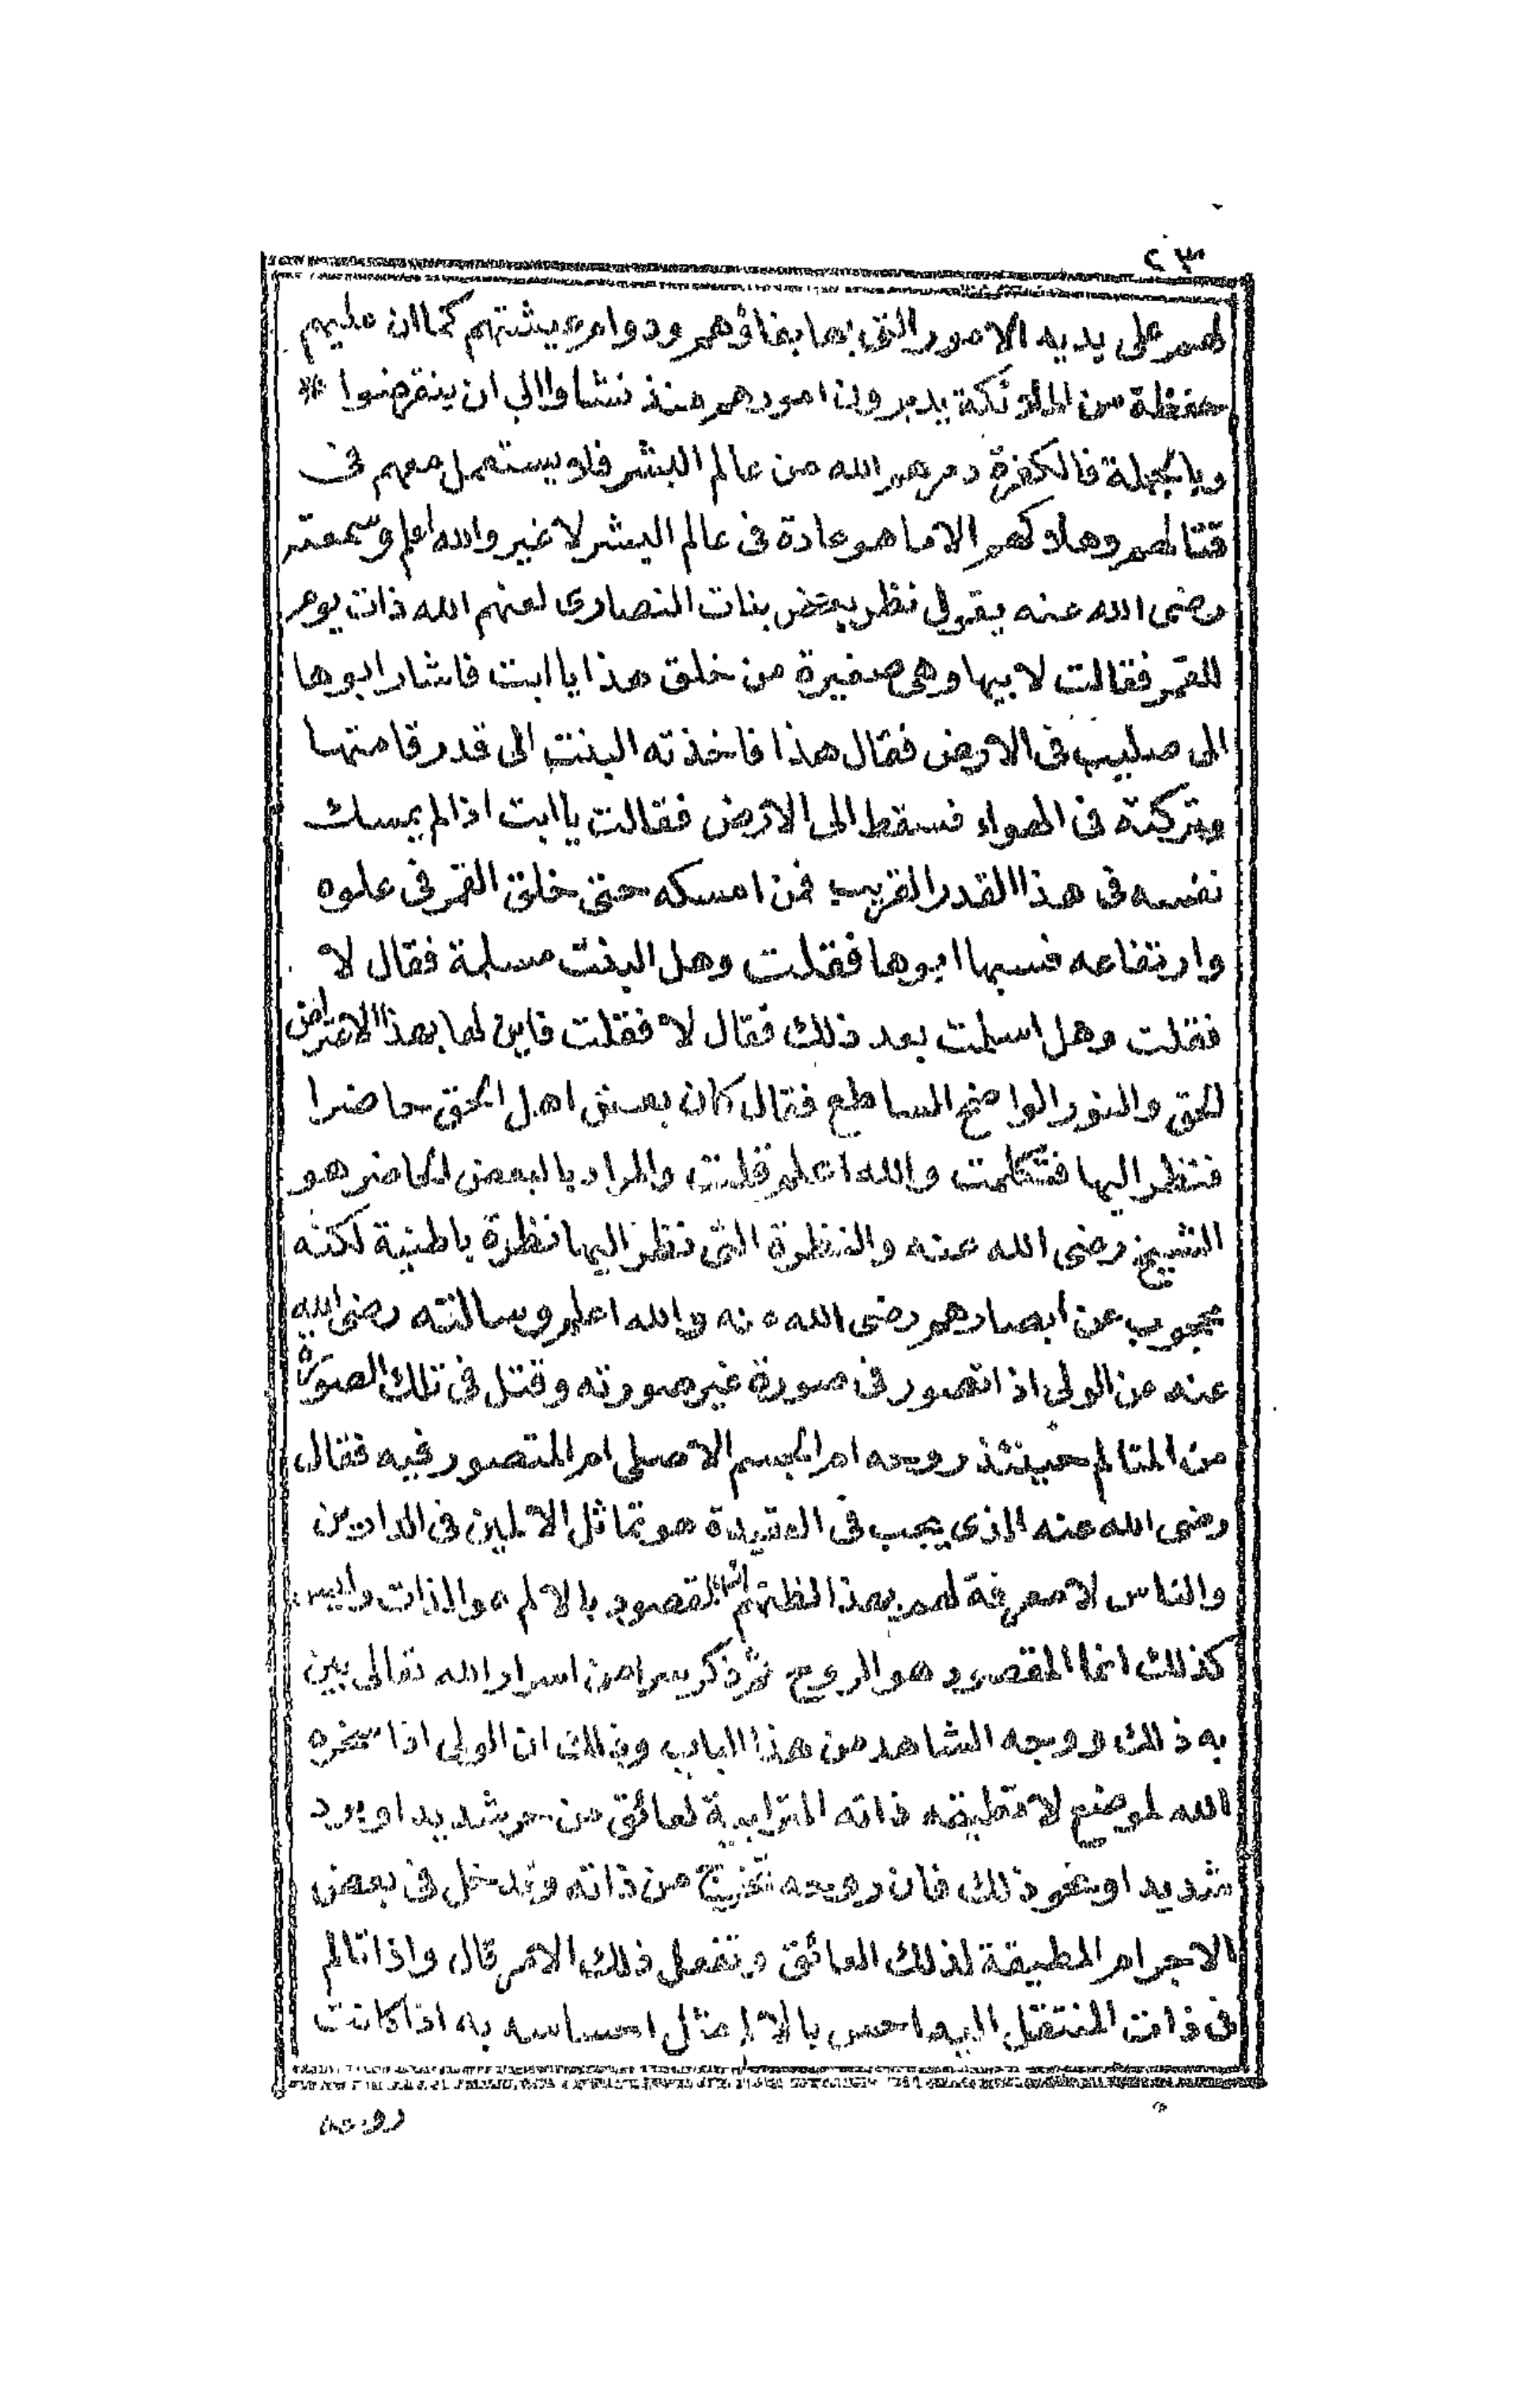 ٢٣
لهم على يديه الامور التى بها بقاؤهم ودوام عيشتهم كما ان عليهم
حفظة من الملائكة يدبرون امورهم منذ نشاوا الى ان ينقرضوا *
وبالجملة فالكفرة دمرهم الله من عالم البشر فلا يستعمل معهم فى
قتالهم وهلاكهم الا ما هو عادة فى عالم البشر لا غير والله اعلم وسمعته
رضى الله عنه يقول نظر بعض بنات النصارى لعنهم الله ذات يوم
للقمر فقالت لابيها وهى صغيرة من خلق هذا يا ابت فاشار ابوها
الى صليب فى الارض فقال هذا فاخذته البنت الى قدر قامتها
وتركته فى الهواء فسقط الى الارض فقالت يا ابت اذا لم يمسك
نفسه فى هذا القدر القريب فمن امسكه حتى خلق القمر فى علوه
وارتفاعه فسبها ابوها فقلت وهل البنت مسلمة فقال لا
فقلت وهل اسلمت بعد ذلك فقال لا فقلت فاين لها بهذا الاعتراض
للحق والنور الواضح الساطع فقال كان بعض اهل الحق حاضرا
فنظر اليها فتكلمت والله اعلم قلت والمراد بالبعض الحاضر هو
الشيخ رضى الله عنه والنظرة التى نظر اليها نظرة باطنية لكنه
محجوب عن ابصارهم رضى الله عنه والله اعلم وسالته رضى الله
عنه عن الولى اذا تصور فى صورة غير صورته وقتل فى تلك الصورة
من المتالم حينئذ روحه ام الجسم الاصلى ام المتصور فيه فقال
رضى الله عنه الذى يجب فى العقيدة هو تماثل الالمين فى الدارين
والناس لا معرفة لهم بهذا لظنهم ان المقصود بالالم هو الذات وليس
كذلك انما المقصود هو الروح ثم ذكر سرا من اسرار الله تعالى بين
به ذلك ووجه الشاهد من هذا الباب وذلك ان الولى اذا سخره
الله لموضع لا تطيقه ذاته الترابية لعائق من حر شديد او برد
شديد او نحو ذلك فان روحه تخرج من ذاته وتدخل فى بعض
الاجرام المطيقة لذلك العائق وتفعل ذلك الامر قال واذا تالم
فى ذات المنتقل اليها احس بالالم مثل احساسه به اذا كانت
روحه